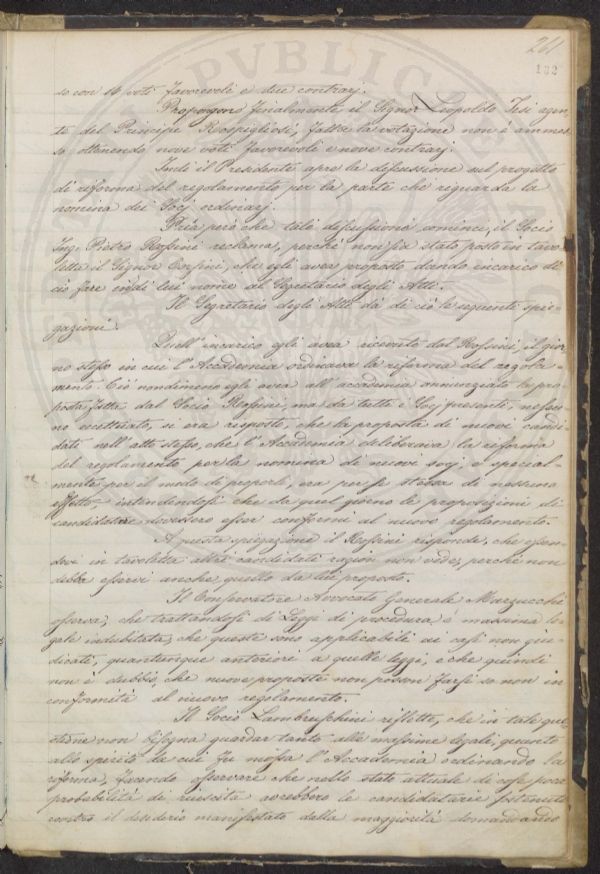 261
132
so con 16 voti favorevoli e due contrarj.
Propongono finalmente il Signor Leopoldo Tesi agen-
te del Principe Rospigliosi, fatta la votazione non è ammes-
so ottenendo nove voti favorevoli e nove contrarj.
Indi il Presidente apre la discussione sul progetto
di riforma del regolamento per la parte che riguarda la
nomina dei Socj ordinarj.
Pria però che tale discussione cominci, il Socio
Ing. Pietro Rossini reclama, perchè non sia stato posto in tavo-
letta il Signor Corsini, che egli avea proposto dando incarico di
ciò fare in di lui nome al Segretario degli Atti.
Il Segretario degli Atti dà di ciò le seguenti spie-
gazioni.
Quell'incarico egli avea ricevuto dal Rossini, il gior-
no stesso in cui l'Accademia ordinava la riforma del regola-
mento. Ciò nondimeno egli avea all'accademia annunziato la pro-
posta fatta dal Socio Rossini, ma da tutti i Socj presenti, nessu-
no eccettuato, si era risposto, che la proposta di nuovi candi-
dati nell'atto stesso, che l'Accademia deliberava la riforma
del regolamento per la nomina di nuovi socj, e special-
mente per il modo di proporli, era per se stessa di nessuno
effetto, intendendosi che da quel giorno le proposizioni di
candidature dovessero esser conformi al nuovo regolamento.
A questa spiegazione il Rossini risponde, che essen-
dovi in tavoletta altri candidati ragion non vede, perchè non
debba esservi anche quello da lui proposto.
Il Conservatore Avvocato Generale Marzucchi
osserva, che trattandosi di Leggi di procedura è massima le-
gale indubitata, che queste sono applicabili ai casi non giu-
dicati, quantunque anteriori a quelle leggi, e che quindi
non è dubbio, che nuove proposte non posson farsi se non in
conformità al nuovo regolamento.
Il Socio Lambruschini riflette, che in tale que-
stione non bisogna guardar tanto alle massime legali, quanto
allo spirito da cui fu mossa l'Accademia ordinando la
riforma, facendo osservare che nello stato attuale di cose poca
probabilità di riuscita avrebbero le candidature sostenute
contro il desiderio manifestato dalla maggiorità domandando